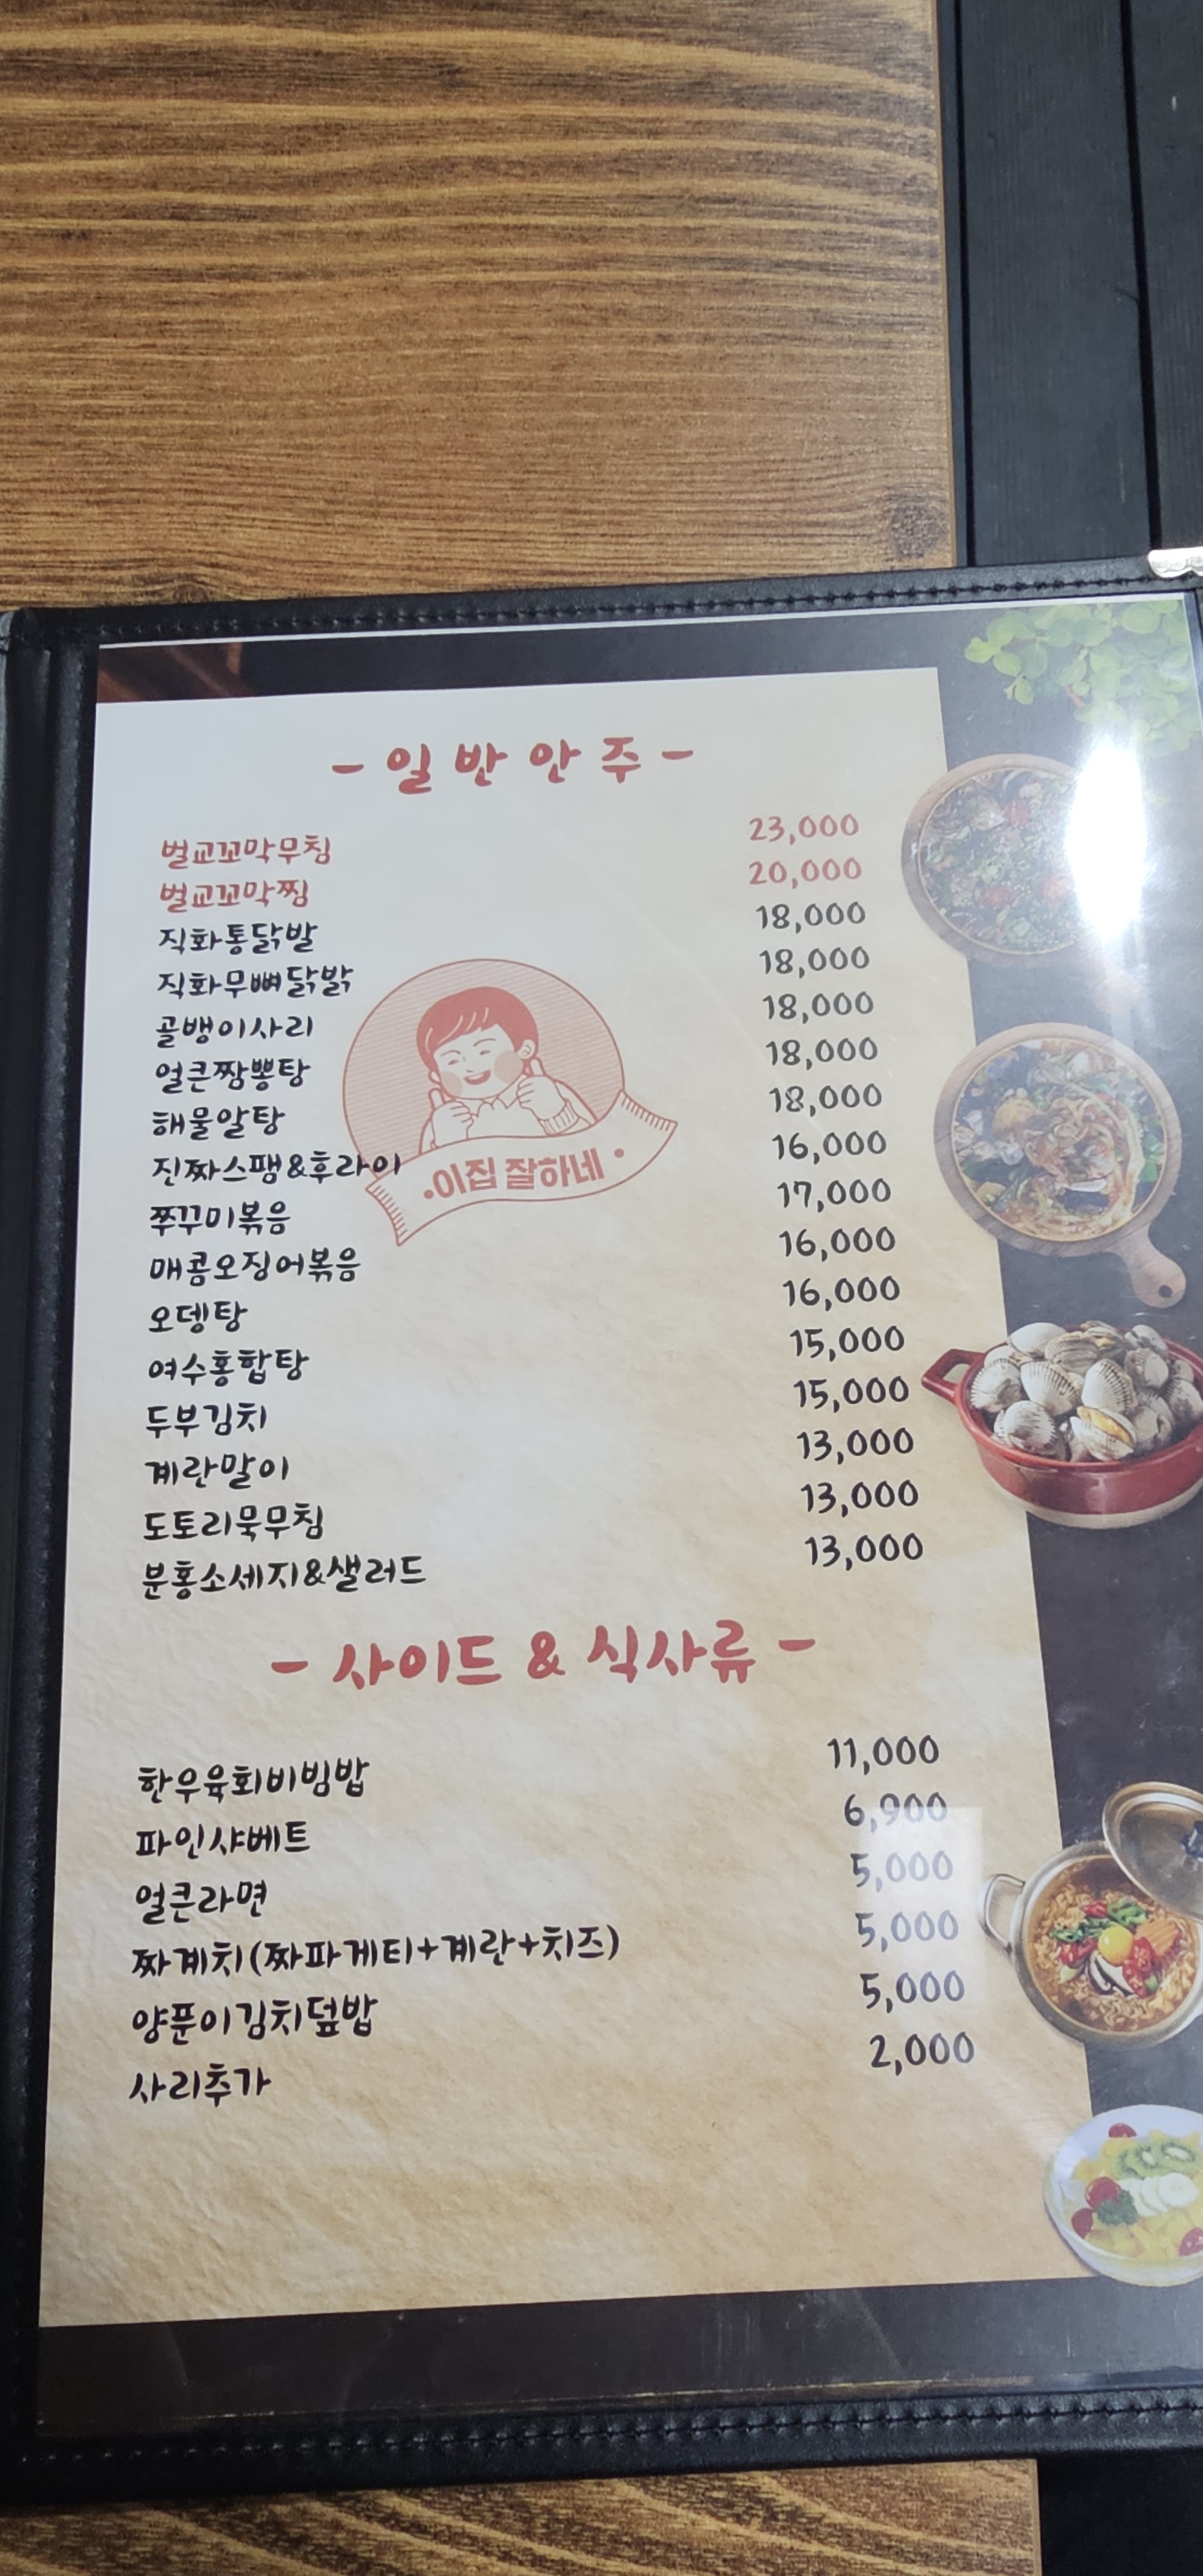 - 일반안주 -
벌교꼬막무침 23,000
벌교꼬막찜 20,000
직화통닭발 18,000
직화무뼈닭밝 18,000
골뱅이사리 18,000
얼큰짬뽕탕 18,000
해물알탕 18,000
진짜스팸&후라이 16,000
쭈꾸미볶음 17,000
매콤오징어볶음 16,000
오뎅탕 16,000
여수홍합탕 15,000
두부김치 15,000
계란말이 13,000
도토리묵무침 13,000
분홍소세지&샐러드 13,000
•이집 잘하네•
- 사이드 & 식사류 -
한우육회비빔밥 11,000
파인샤베트 6,900
얼큰라면 5,000
짜계치(짜파게티+계란+치즈) 5,000
양푼이김치덮밥 5,000
사리추가 2,000